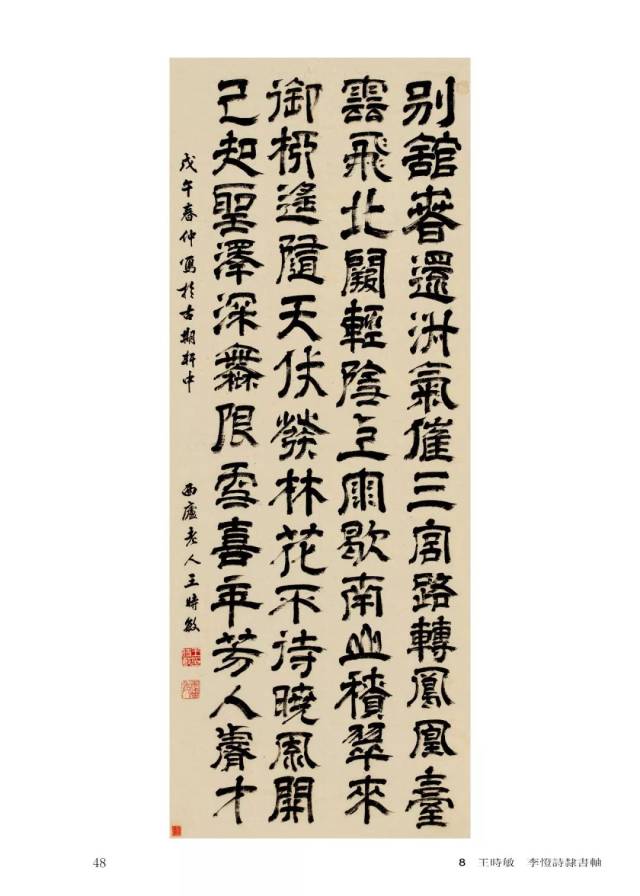 別舘春還淑氣催三宮路轉鳳凰臺
雲飛北闕輕陰雨歇南山積翠來
御柳遙隨天仗發林花不待曉風開
已知聖澤深無限雪喜年芳入睿才
戊午春仲寫於古期軒中 西廬老人王時敏
48
8 王時敏 李憕詩隸書軸